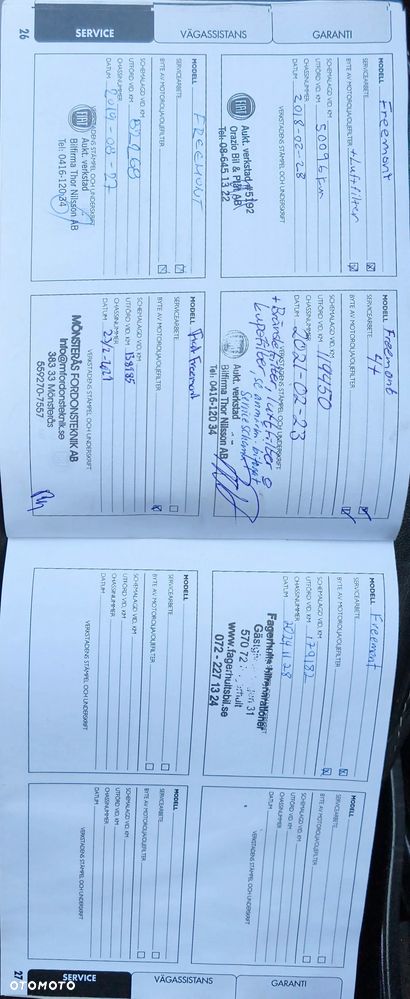 26
SERVICE
VÄGASSISTANS
GARANTI
MODELL Freemont
SERVICEARBETE
BYTE AV MOTOROLJA/OLJEFILTER
+ Luftfilter
SCHEMALAGD VID. KM
UTFÖRD VID. KM 50096 km
CHASSINUMMER
DATUM 2018-02-28
VERKSTADENS STÄMPEL OCH UNDERSKRIFT
FIAT
Aukt. verkstad #5192
Orazio Bil & Plåt AB
Tel. 08-645 13 22
MODELL Freemont
47
SERVICEARBETE
BYTE AV MOTOROLJA/OLJEFILTER
SCHEMALAGD VID. KM
UTFÖRD VID. KM 119450
CHASSINUMMER
DATUM 2021-02-23
VERKSTADENS STÄMPEL OCH UNDERSKRIFT
+ Bränslefilter/luftfilter &
kupefilter se
Aukt. verkstad
Bilfirma Thor Nilsson AB
Tel. 0416-120 34
MODELL FREEMONT
SERVICEARBETE
BYTE AV MOTOROLJA/OLJEFILTER
SCHEMALAGD VID. KM
UTFÖRD VID. KM
CHASSINUMMER
DATUM 2019-03-27
VERKSTADENS STÄMPEL OCH UNDERSKRIFT
FIAT
Aukt. verkstad
Bilfirma Thor Nilsson AB
Tel. 0416-120 34
MODELL Fiat Freemont
SERVICEARBETE
BYTE AV MOTOROLJA/OLJEFILTER
SCHEMALAGD VID. KM
UTFÖRD VID. KM 138185
CHASSINUMMER
DATUM
VERKSTADENS STÄMPEL OCH UNDERSKRIFT
MÖNSTERÅS FORDONSTEKNIK AB
info@mfordonsteknik.se
383 33 Mönsterås
559270-7557
MODELL Freemont
SERVICEARBETE
BYTE AV MOTOROLJA/OLJEFILTER
SCHEMALAGD VID. KM
UTFÖRD VID. KM 179182
CHASSINUMMER
DATUM 2024 11 28
VERKSTADENS STÄMPEL OCH UNDERSKRIFT
Fagerhults
31
570 72
www.fagerhultsbil.se
072 - 227 13 24
MODELL
SERVICEARBETE
BYTE AV MOTOROLJA/OLJEFILTER
SCHEMALAGD VID. KM
UTFÖRD VID. KM
CHASSINUMMER
DATUM
VERKSTADENS STÄMPEL OCH UNDERSKRIFT
MODELL
SERVICEARBETE
BYTE AV MOTOROLJA/OLJEFILTER
SCHEMALAGD VID. KM
UTFÖRD VID. KM
CHASSINUMMER
DATUM
VERKSTADENS STÄMPEL OCH UNDERSKRIFT
MODELL
SERVICEARBETE
BYTE AV MOTOROLJA/OLJEFILTER
SCHEMALAGD VID. KM
UTFÖRD VID. KM
CHASSINUMMER
DATUM
VERKSTADENS STÄMPEL OCH UNDERSKRIFT
27
SERVICE
VÄGASSISTANS
GARANTI
OTOMOTO